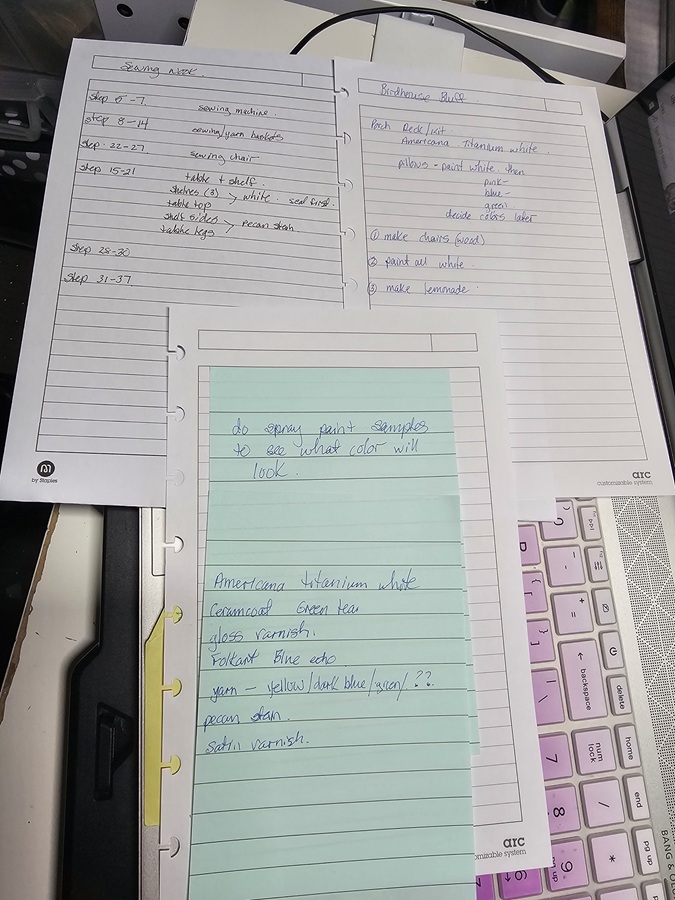 Sewing Nook
step 5-7
sewing machine.
step 8-14
sewing/yarn baskets
step 22-27
sewing chair
step 15-21
table + shelf.
shelves (3) > white. seal first.
table top
shelf sides > pecan stain.
table legs
step 28-30
step 31-37
by Staples
Birdhouse Bluff.
Porch Deck/
Americana Titanium white.
pillows - paint white. then
pink-
blue-
green
decide colors later
① make chairs (wood)
② paint all white.
③ make lemonade.
arc
customizable system
do spray paint samples
to see what color will
look.
Americana titanium white
Ceramcoat Green tea
gloss varnish.
Folkart Blue echo
yarn - yellow/dark blue/green/??.
pecan stain.
satin varnish.
arc
omizable system
backspace
delete
home
num lock
end
pg up
7
8
9
/
*
+
=
-
BANG & OLU